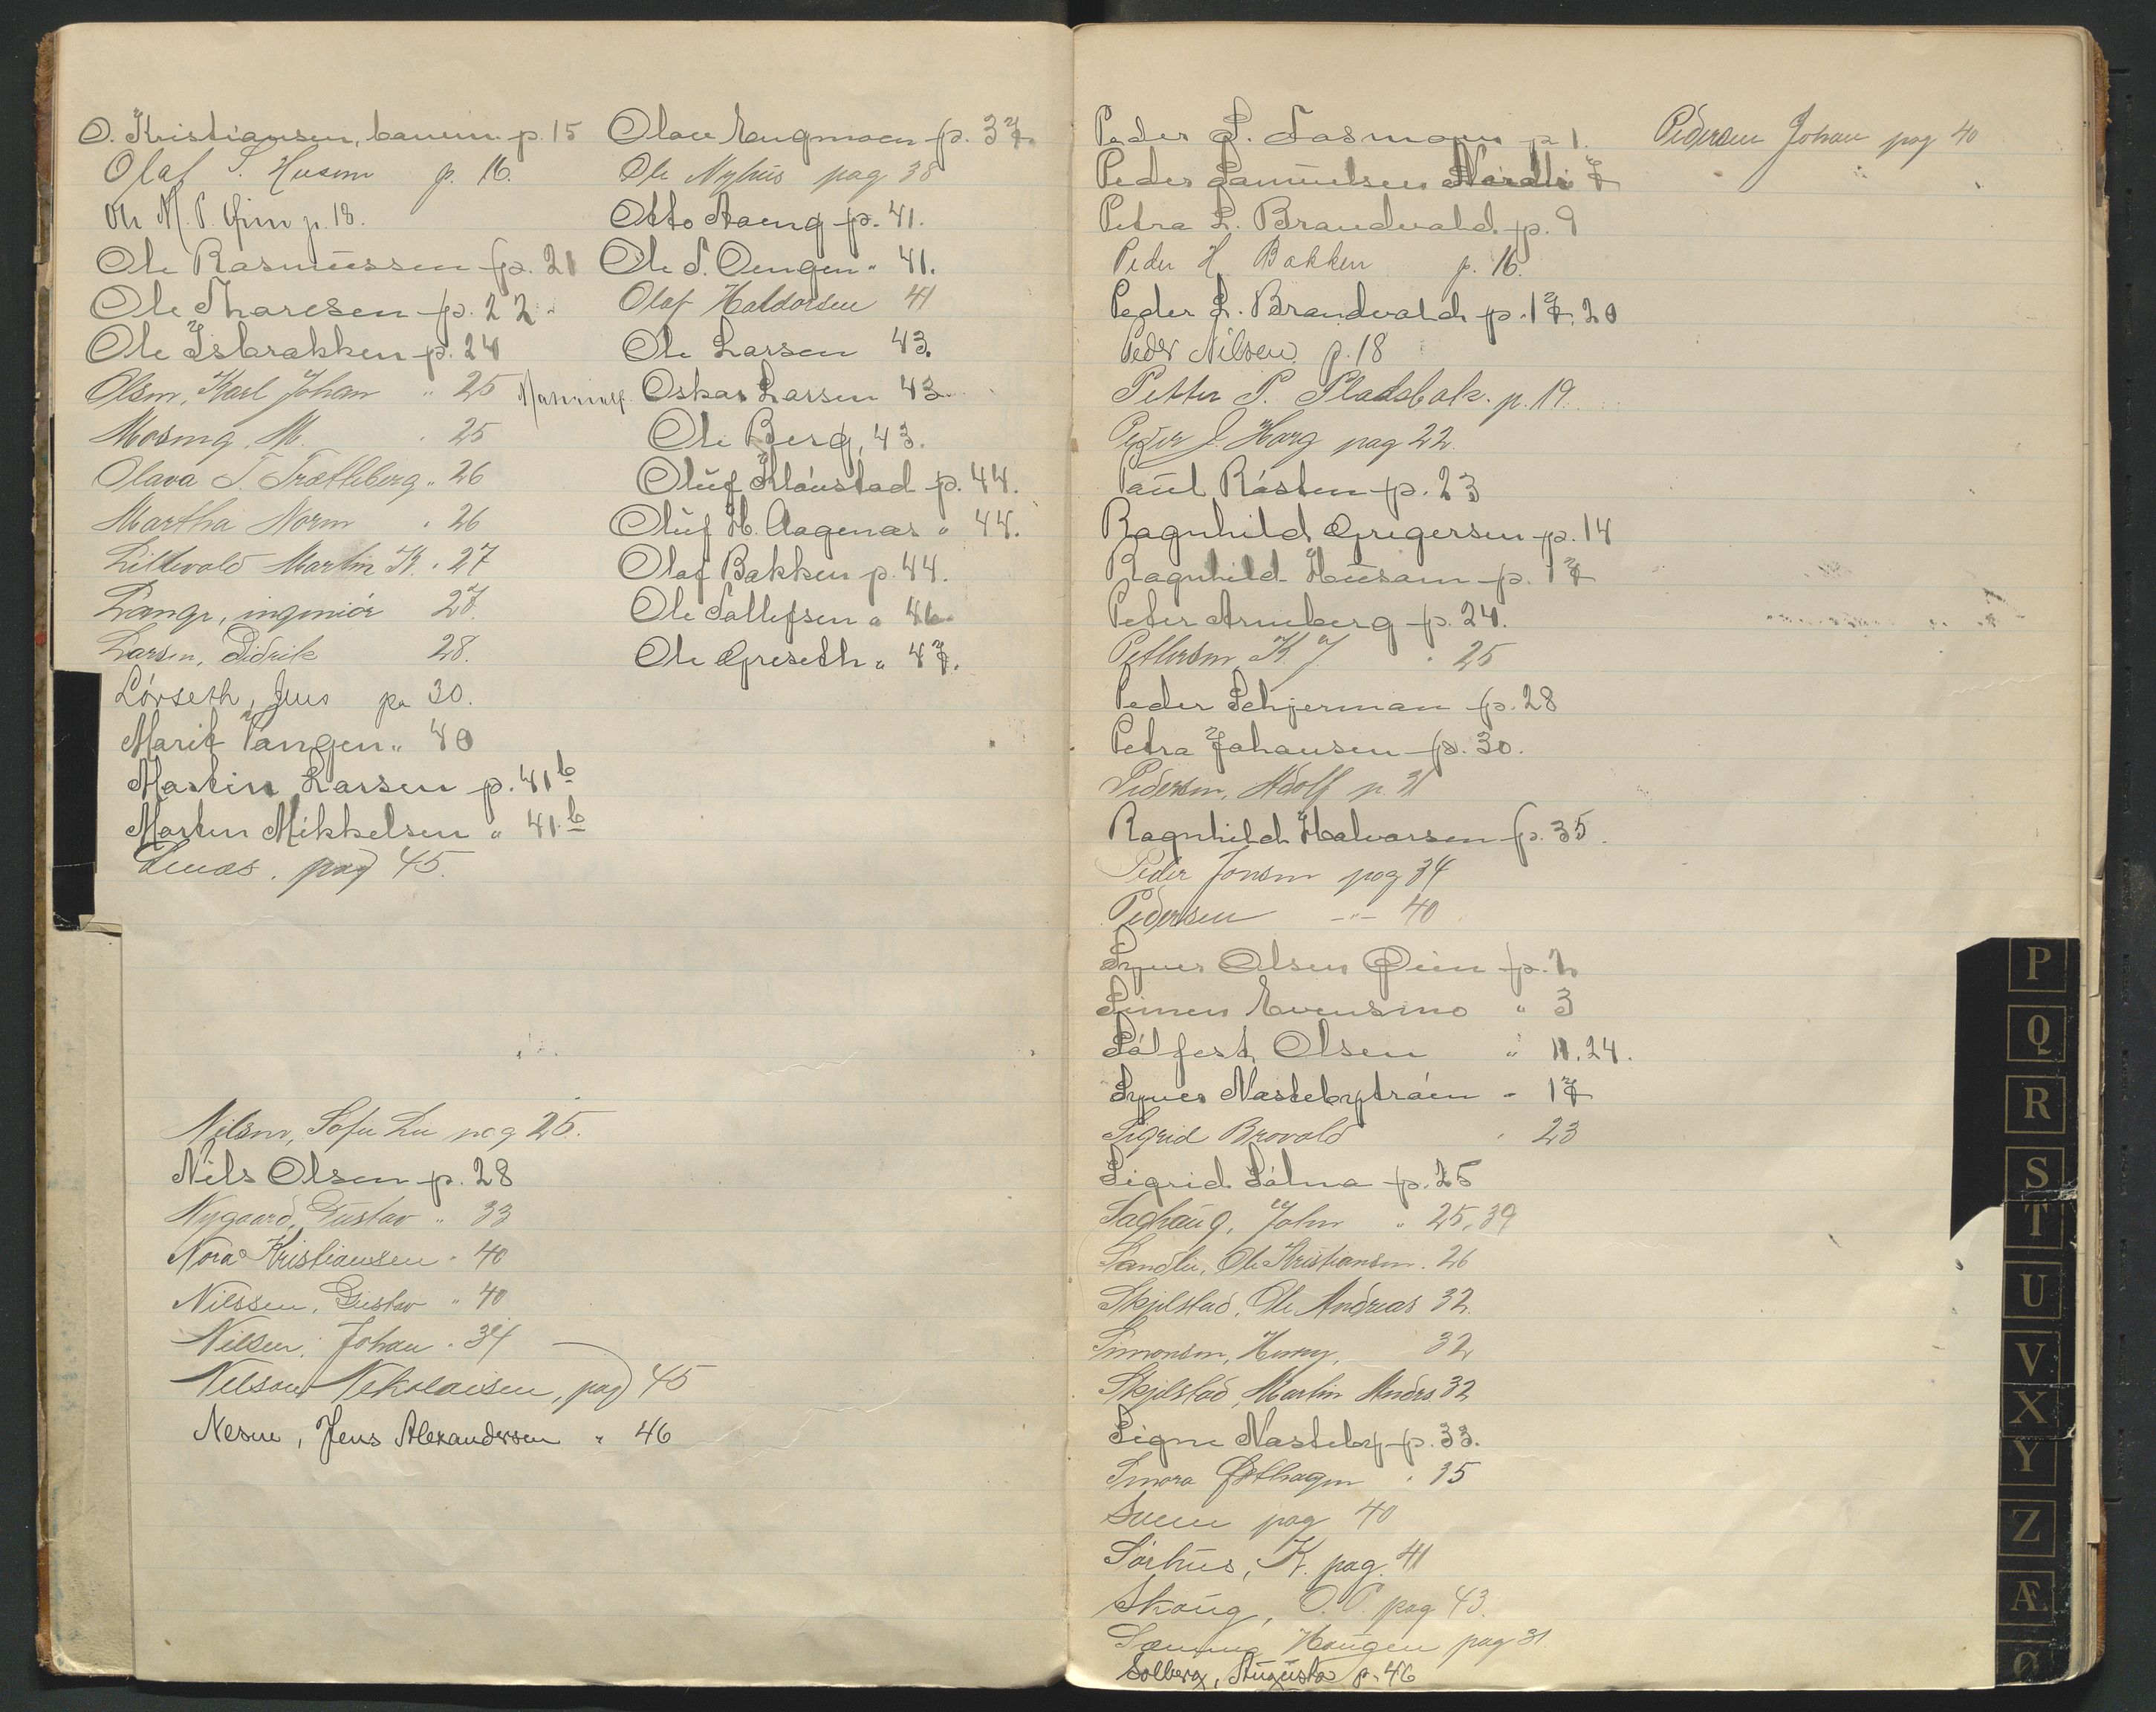 O. Kristiansen, p. 15
Olaf S. Husom p. 16.
Ole M. P. p. 18.
Ole Rasmussen p. 21
Ole Thoresen p. 22.
Ole Isbrækken p. 24
Olsen, Karl Johan " 25
Mosing, M. " 25
Olava T. Trætteberg " 26
Martha Norm " 26
Lillevold Martin K. " 27
Lange, ingeniör 27.
Larsen, Didrik 28.
Lörseth, Jens pa 30.
Marit Vangen " 40
Martin Larsen p. 41 b
Morten Mikkelsen " 41. b
pag 45.
Nilsen, pag 25.
Nils Olsen p. 28
Nygaard, Gustav " 33
Nora Kristiansen " 40
Nilssen, Gustav " 40
Nilsen, Johan " 34
Nilson Nikolaisen, pag 45
Nesne, Jens Alexandersen " 46
Olave Engmoen p. 37.
Ole Nyhus pag 38
Otto Moeng p. 41.
Ole S. Oengen " 41.
Olaf Haldorsen 41
Ole Larsen 43.
Oskar Larsen 43.
Ole Berg, 43.
Oluf Kloustad p. 44.
Oluf H. Aagenæs " 44.
Olaf Bakken p. 44.
Ole Tollefsen " 46
Ole Greseth " 47.
Peder S. p 1.
Peder Samuelsen Nordli 7
Petra L. Brandvold. p. 9
Peder H. Bakken p. 16.
Peder L. Brandvold p. 17, 20
Peder Nilsen p. 18
Petter P. Pladsbak. p. 19.
Peder J. Horg pag 22.
PaulRåsten p. 23
Ragnhild Gregersen p. 14
Ragnhild Husom p. 17
Peter Arneberg p. 24.
Pettersen K. J. " 25
Peder Schjerman p. 28
Petra Johansen p. 30.
Pedersen, Adolf p. 31
Ragnhild Halvorsen p. 35.
Peder Jonsen pag 34
Pedersen -"- 40
Syver Olsen p. 2
Simen Evensmo " 3
Sålfest Olsen " 11. 24.
Syver Næstebytråen " 17
Sigrid Brovold " 23
Sigrid Sålna p. 25
Saghaug, John " 25, 39
Sandlie, Ole Kristiansen. 26
Skjelstad, Ole Andreas 32.
Simonsen, 32
Skjelstad, Martin Andrs. 32
Signe Næsteby p. 33.
Østhagen " 35
pag 40
Sørhus, K. pag. 41
Skoug, O. P. pag 43.
Haugen pag 31.
Solberg, Augusta p. 46
Pedersen Johan pag 40
P
Q
R
S
T
U
V
X
Y
Z
Æ
Ø